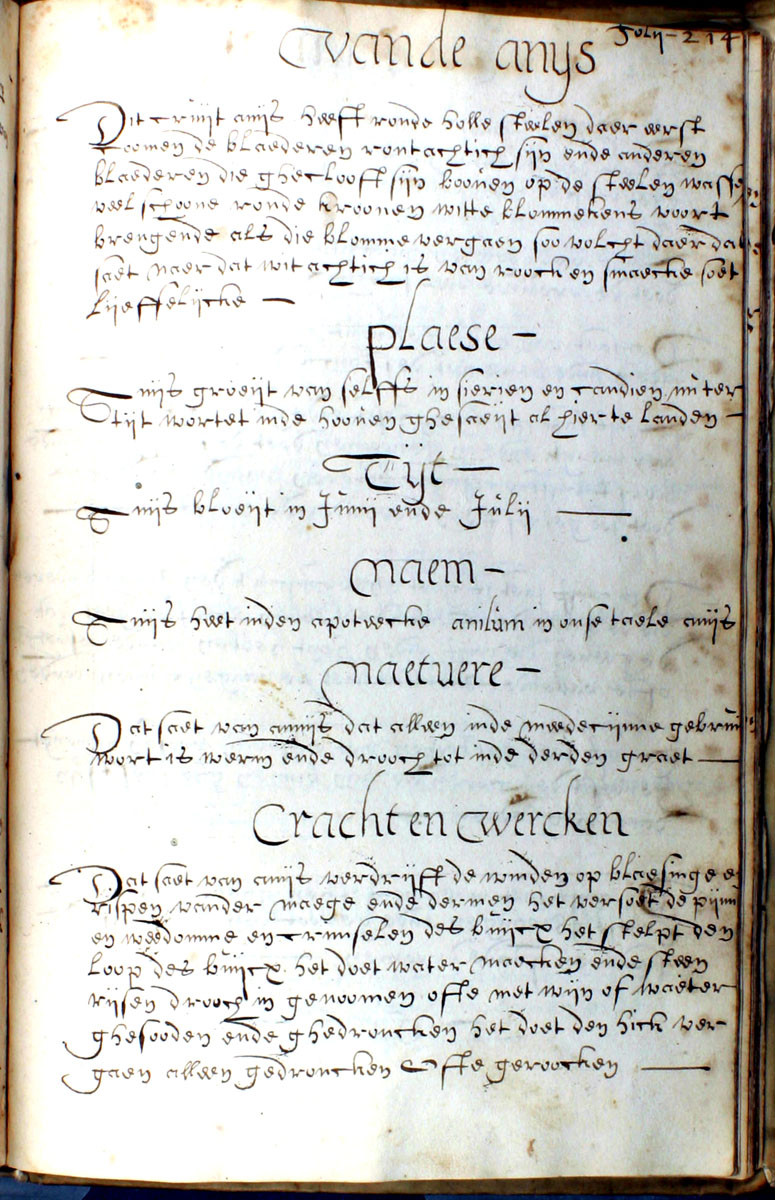 folij - 214
vande anijs
Dit cruijt anijs heeft ronde holle steelen daer eerst
coomen de blaederen rontachtich sijn ende anderen
blaederen die gheclooft sijn booven op de steelen wasse
veel schoone ronde kroonen witte blommekens voort
brengende als die blomme vergaen soo volcht daer dat
saet naer dat witachtich is van roock en smaecke soet
lijeffelijcke —
plaese —
Anijs groeijt van selffs in sierien en candien, nu ter
tijt wortet inde hooven ghesaeijt al hier te landen —
Tijt —
Anijs bloeijt in Junij ende Julij —
Naem —
Anijs heet inden apoteecke anisum in onse taele anijs
Naetuere —
Dat saet van annijs dat alleen inde meedecijnne gebruij
wort is werm ende drooch tot inde derden graet —
Cracht en Wercken
Dat saet van anijs verdrijft de winden op blaesinge e
rispen vander maege ende dermen het versoet de pijnn
en weedomme en crimselen des buijcx het stelpt den
loop des buijcx. het doet water maecken ende steen
rijsen drooch in genoomen ofte met wijn of waeter
ghesooden ende ghedroncken het doet den hick ver
gaen alleen gedroncken Ofte geroocken —